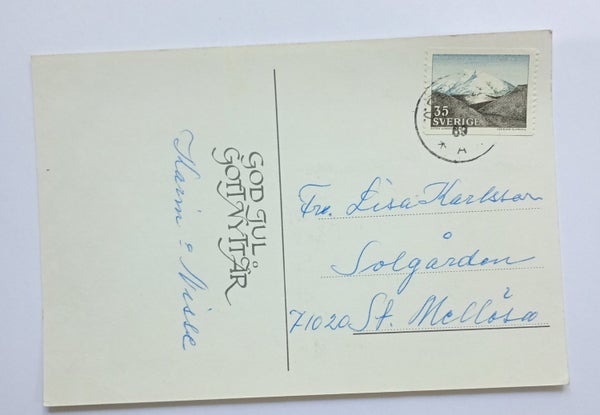 GOD JUL
GOTT NYTT ÅR
Karin o Nisse
35
SVERIGE
69
A
Fru. Lisa Karlsson
Solgården
71020 St. Mellösa